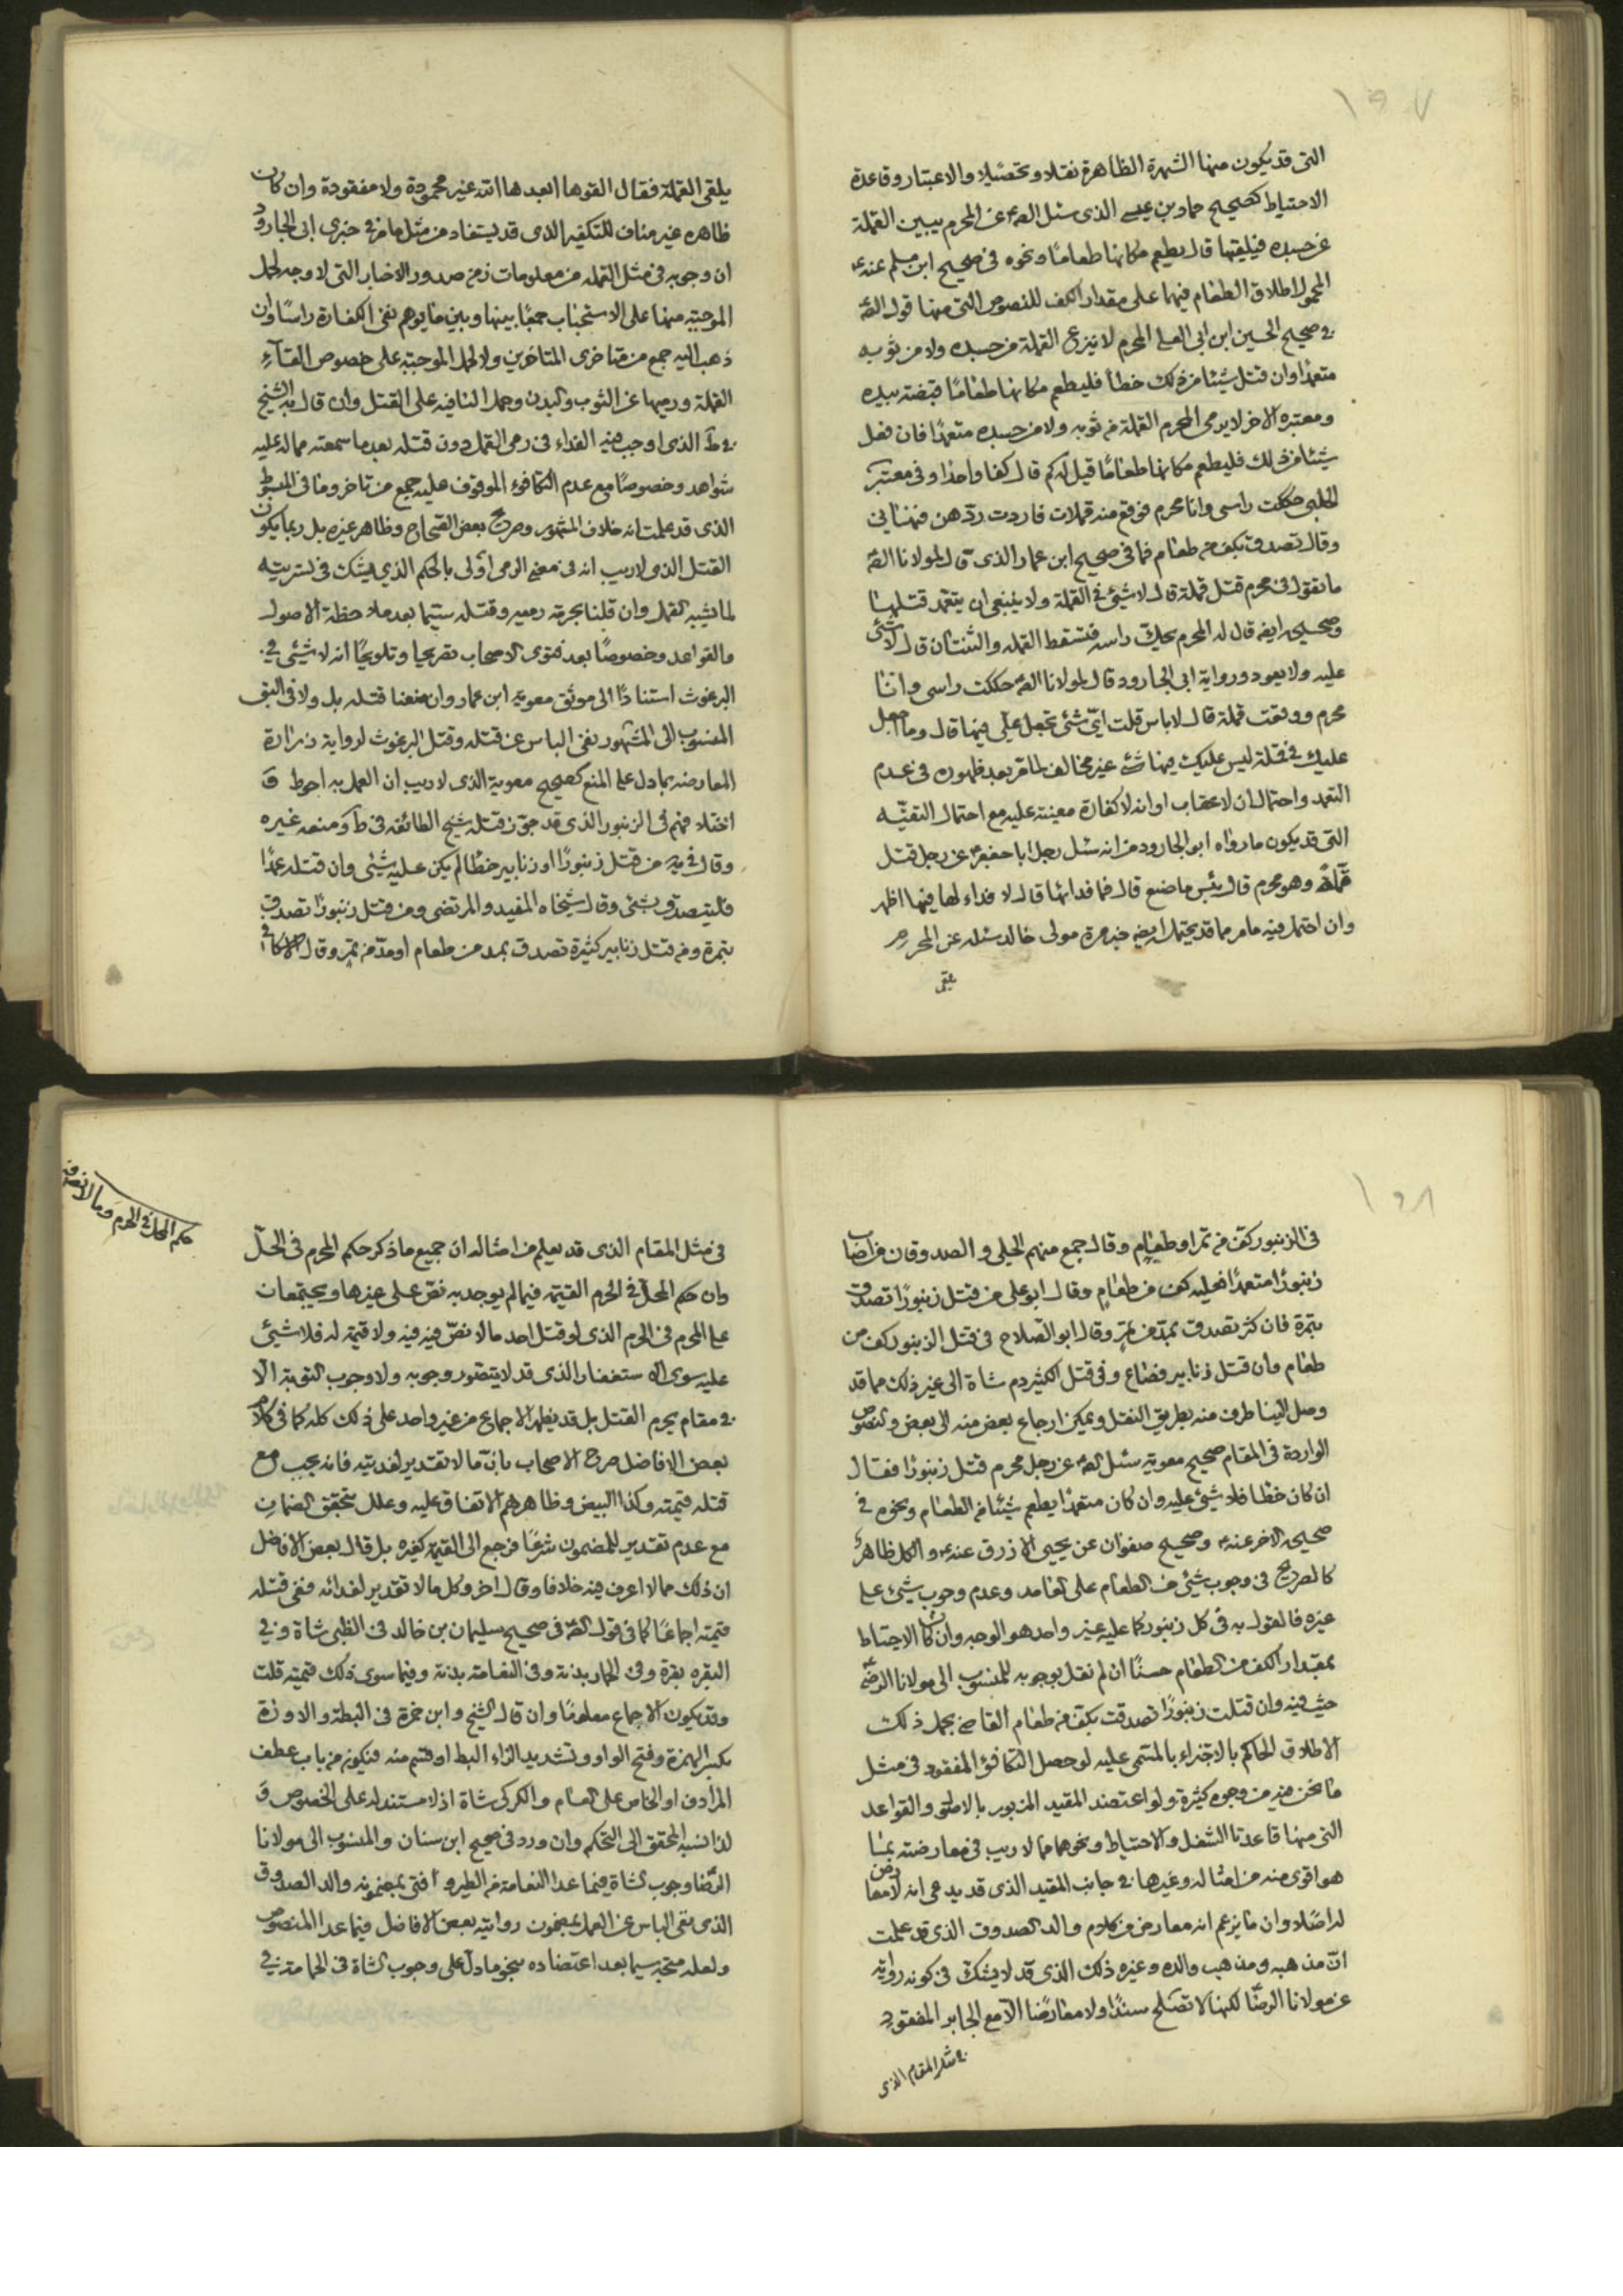 ١٩٧
التى قد يكون منها الشهرة الظاهرة نقلا وتحصيلا والاعتبار وقاعدة
الاحتياط كصحيح حماد بن عيسى الذى سئل الصّ عن المحرم يبين القملة
عن جسده فيلقيها قال يطعم مكانها طعامًا ونحوه فى صحيح ابن مسلم عنه ع
المحمول اطلاق الطعام فيهما على مقدار الكف للنصوص التى منها قول الصّ
فى صحيح الحسين ابن ابى العلا المحرم لا ينزع القملة من جسده ولا من ثوبه
متعمدًا وان قتل شيئا من ذلك خطأ فليطعم مكانها طعامًا قبضة بيده
ومعتبره الاخر لا يرمى المحرم القملة من ثوبه ولا من جسده متعمدًا فان فعل
شيئا من ذلك فليطعم مكانها طعامًا قيل له كم قال كفا واحدا وفى معتبر
الحلبى حككت راسى وانا محرم فوقع منه قملات فاردت ردهن فنهانى
وقال تصدق بكف من طعام فما فى صحيح ابن عمار الذى قال لمولانا الصّ
ما تقول فى محرم قتل قملة قال لا شيئ فى القملة ولا ينبغى ان يتعمد قتلها
وصحيحه ايضا قال له المحرم يحك راسه فتسقط القمله والثنتان قال لا شئ
عليه ولا يعود ورواية ابى الجارود قال لمولانا الصّ حككت راسى وانا
محرم ووقعت قملة قال لا باس قلت اىّ شئ تجعل علىّ فيها قال وما اجعل
عليك فى قملة ليس عليك فيها شئ غير مخالف لما مر بعد ظهوره فى عدم
التعمد واحتمال ان لا عقاب او انه لا كفارة معينة عليه مع احتمال التقيّه
التى قد يكون ما رواه ابو الجارود من انه سئل رجل ابا جعفر ع عن رجل قتل
قملة وهو محرم قال بئس ما صنع قال فما فدائها قال لا فداء لها فيها اظهر
وان احتمل فيه ما مر مما قد يحتمله ايضا خبر مرة مولى خالد سئله عن المحرم
يلقى
يلقى القملة فقال القوها ابعدها الله غير محمودة ولا مفقودة وان كان
ظاهره غير مناف للتكفير الذى قد يستفاد من مثل ما مر فى خبرى ابى الجارود
ان وجوبه فى مثل القمله من معلومات زمن صدور الاخبار التى لا وجه لحمل
الموجبه منها على الاستحباب جمعًا بينها وبين ما يوهم نفى الكفارة راسًا وان
ذهب اليه جمع من متاخرى المتاخرين ولا لحمل الموجبه على خصوص القآء
القملة ورميها عن الثوب والبدن وحمل النافيه على القتل وان قال به الشيخ
فى ط الذى اوجب فيه الفداء فى رمى القمل دون قتله بعد ما سمعته مما له عليه
شواهد وخصوصًا مع عدم التكافوء الموقوف عليه جمع من تاخر وما فى المبسوط
الذى قد علمت انه خلاف المشهور وصريح بعض الصحاح وظاهر غيره بل ربما يكون
القتل الذى لا ريب انه فى معنى الرمى اولى بالحكم الذي يشك فى تسريته
لما يشبه القمل وان قلنا بحرمة رميه وقتله سيّما بعد ملاحظة الاصول
والقواعد وخصوصًا بعد فتوى الاصحاب تصريحا وتلويحًا انه لا شيئ فى
البرغوث استنادًا الى موثق معويه ابن عمار وان منعنا قتله بل ولا فى البق
المنسوب الى المشهور نفى الباس عن قتله وقتل البرغوث لرواية زرارة
المعارضة بما دل على المنع كصحيح معوية الذى لا ريب ان العمل به احوط وَ
اختلافهم فى الزنبور الذى قد جوّز قتله شيخ الطائفه فى ط ومنعه غيره
وقال فى يه من قتل زنبورًا او زنابير خطأ لم يكن عليه شيئى وان قتله عمدًا
فليتصدق بشئ وقال شيخاه المفيد والمرتضى ومن قتل زنبورًا تصدق
بتمرة ومن قتل زنابير كثيرة تصدق بمد من طعام او مدّ من تمر وقال
١٩٨
فى الزنبور كف من تمر او طعام وقال جمع منهم الحلى و الصدوقان من اصاب
زنبورًا متعمدًا فعليه كف من طعام وقال ابو على من قتل زنبورًا تصدق
بتمرة فان كثر تصدق بمدّ من تمر وقال ابو الصلاح فى قتل الزنبور كف من
طعام وان قتل زنابير فصاع وفى قتل الكثير دم شاة الى غير ذلك مما قد
وصل الينا طرف منه بطريق النقل ويمكن ارجاع بعض منه الى بعض والنصوص
الواردة فى المقام صحيح معوية سئل الصّ عن رجل محرم قتل زنبورًا فقال
ان كان خطأ فلا شيئ عليه وان كان متعمدًا يطعم شيئا من الطعام ونحوه فى
صحيحه الاخر عنه ع وصحيح صفوان عن يحيى الازرق عنه ع والكل ظاهر
كالصريح فى وجوب شيئ من الطعام على العامد وعدم وجوب شيئ على
غيره فالقول به فى كل زنبور كما عليه غير واحد هو الوجه وان كان الاحتياط
بمقدار الكف من الطعام حسنًا ان لم نقل بوجوبه للمنسوب الى مولانا الرضا
حيث فيه وان قتلت زنبورًا تصدقت بكف من طعام القاضى بحمل ذلك
الاطلاق الحاكم بالاجتزاء بالمسمى عليه لو حصل التكافؤ المفقود فى مثل
ما نحن فيه من وجوه كثيرة ولو اعتضد المقيد المزبور بالاصل والقواعد
التى منها قاعدتا الشغل والاحتياط ونحوهما مما لا ريب فى معارضته بما
هو اقوى منه من امثاله وغيرها فى جانب المقيد الذى قد يدعى انه لا معارض
له اصلا وان ما يزعم انه معارض من كلام والد الصدوق الذى قد علمت
انّ مذهبه ومذهب والده وغيره ذلك الذى قد لا يشك فى كونه رواية
عن مولانا الرضّا لكنها لا تصلح سندًا ولا معارضًا الا مع الجابر المفقود
فى مثل المقام الذى
حكم المحل فى الحرم وما لا نص فيه
فى مثل المقام الذى قد يعلم من امثاله ان جميع ما ذكر حكم المحرم فى الحلّ
وان حكم المحلّ فى الحرم القيمة فيما لم يوجد به نصّ على غيرها ويجتمعان
على المحرم فى الحرم الذى لو قتل احد ما لا نصّ فيه فيه ولا قيمة له فلا شيئ
عليه سوى الاستغفار الذى قد لا يتصور وجوبه ولا وجوب التوبة الا
فى مقام يحرم القتل بل قد يظهر الاجماع من غير واحد على ذلك كله كما فى كلام
بعض الافاضل صرح الاصحاب بانّ ما لا تقدير لفديته فانه يجب مع
قتله قيمته وكذا البيض وظاهرهم الاتفاق عليه وعلل بتحقق الضمان
مع عدم تقدير للمضمون شرعًا فرجع الى القيمة كغيره بل قال بعض الافاضل
ان ذلك مما لا اعرف فيه خلافا وقال اخر وكل ما لا تقدير لفدائه ففى قتله
قيمته اجماعًا كما فى قول الصّ فى صحيح سليمان بن خالد فى الظبى شاة وفى
البقره بقرة وفى الحمار بدنة وفى النعامة بدنة وفيما سوى ذلك قيمته قلت
وقد يكون الاجماع معلومًا وان قال الشيخ وابن حمزة فى البطة والاوزة
بكسر الهمزة وفتح الواو وتشديد الزاء البط او قسم منه فيكون من باب عطف
المرادف او الخاص على العام والكركى شاة اذ لا مستند له على الخصوص وَ
لذا نسبه المحقق الى التحكم وان ورد فى صحيح ابن سنان والمنسوب الى مولانا
الرضّا وجوب الشاة فيما عدا النعامة من الطير و افتى بمضمونه والد الصدوق
الذى نفى الباس عن العمل بمضمون روايته بعض الافاضل فيما عدا المنصوص
ولعله متجه سيما بعد اعتضاده بنحو ما دل على وجوب الشاة فى الحمامة فى